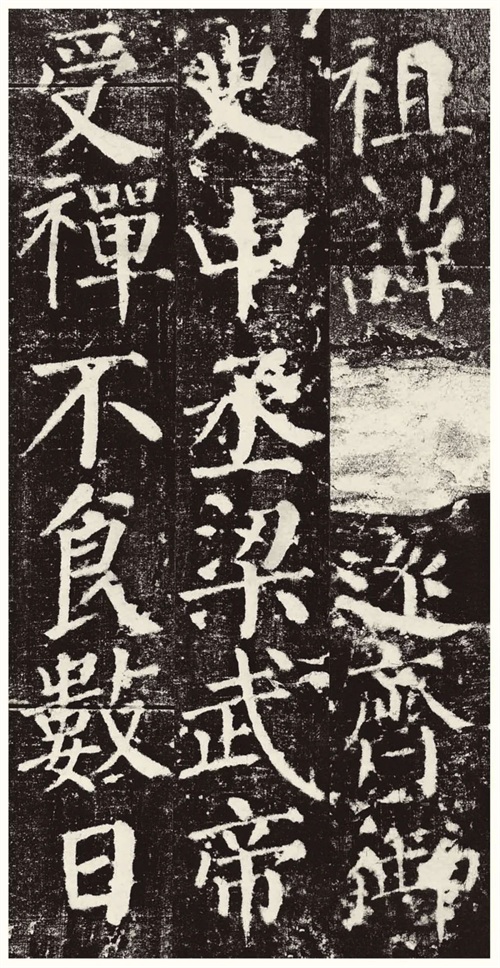 祖諱遠齊御
史中丞梁武帝
受禪不食數日